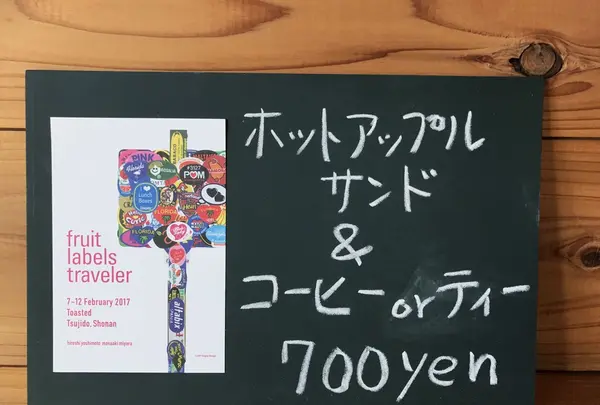 fruit
labels
traveler
7-12 February 2017
Toasted
Tsujido, Shonan
PINK
POM
Lunch
Boxes
FLORIDA
ホットアップル
サンド
&
コーヒー or ティー
700yen